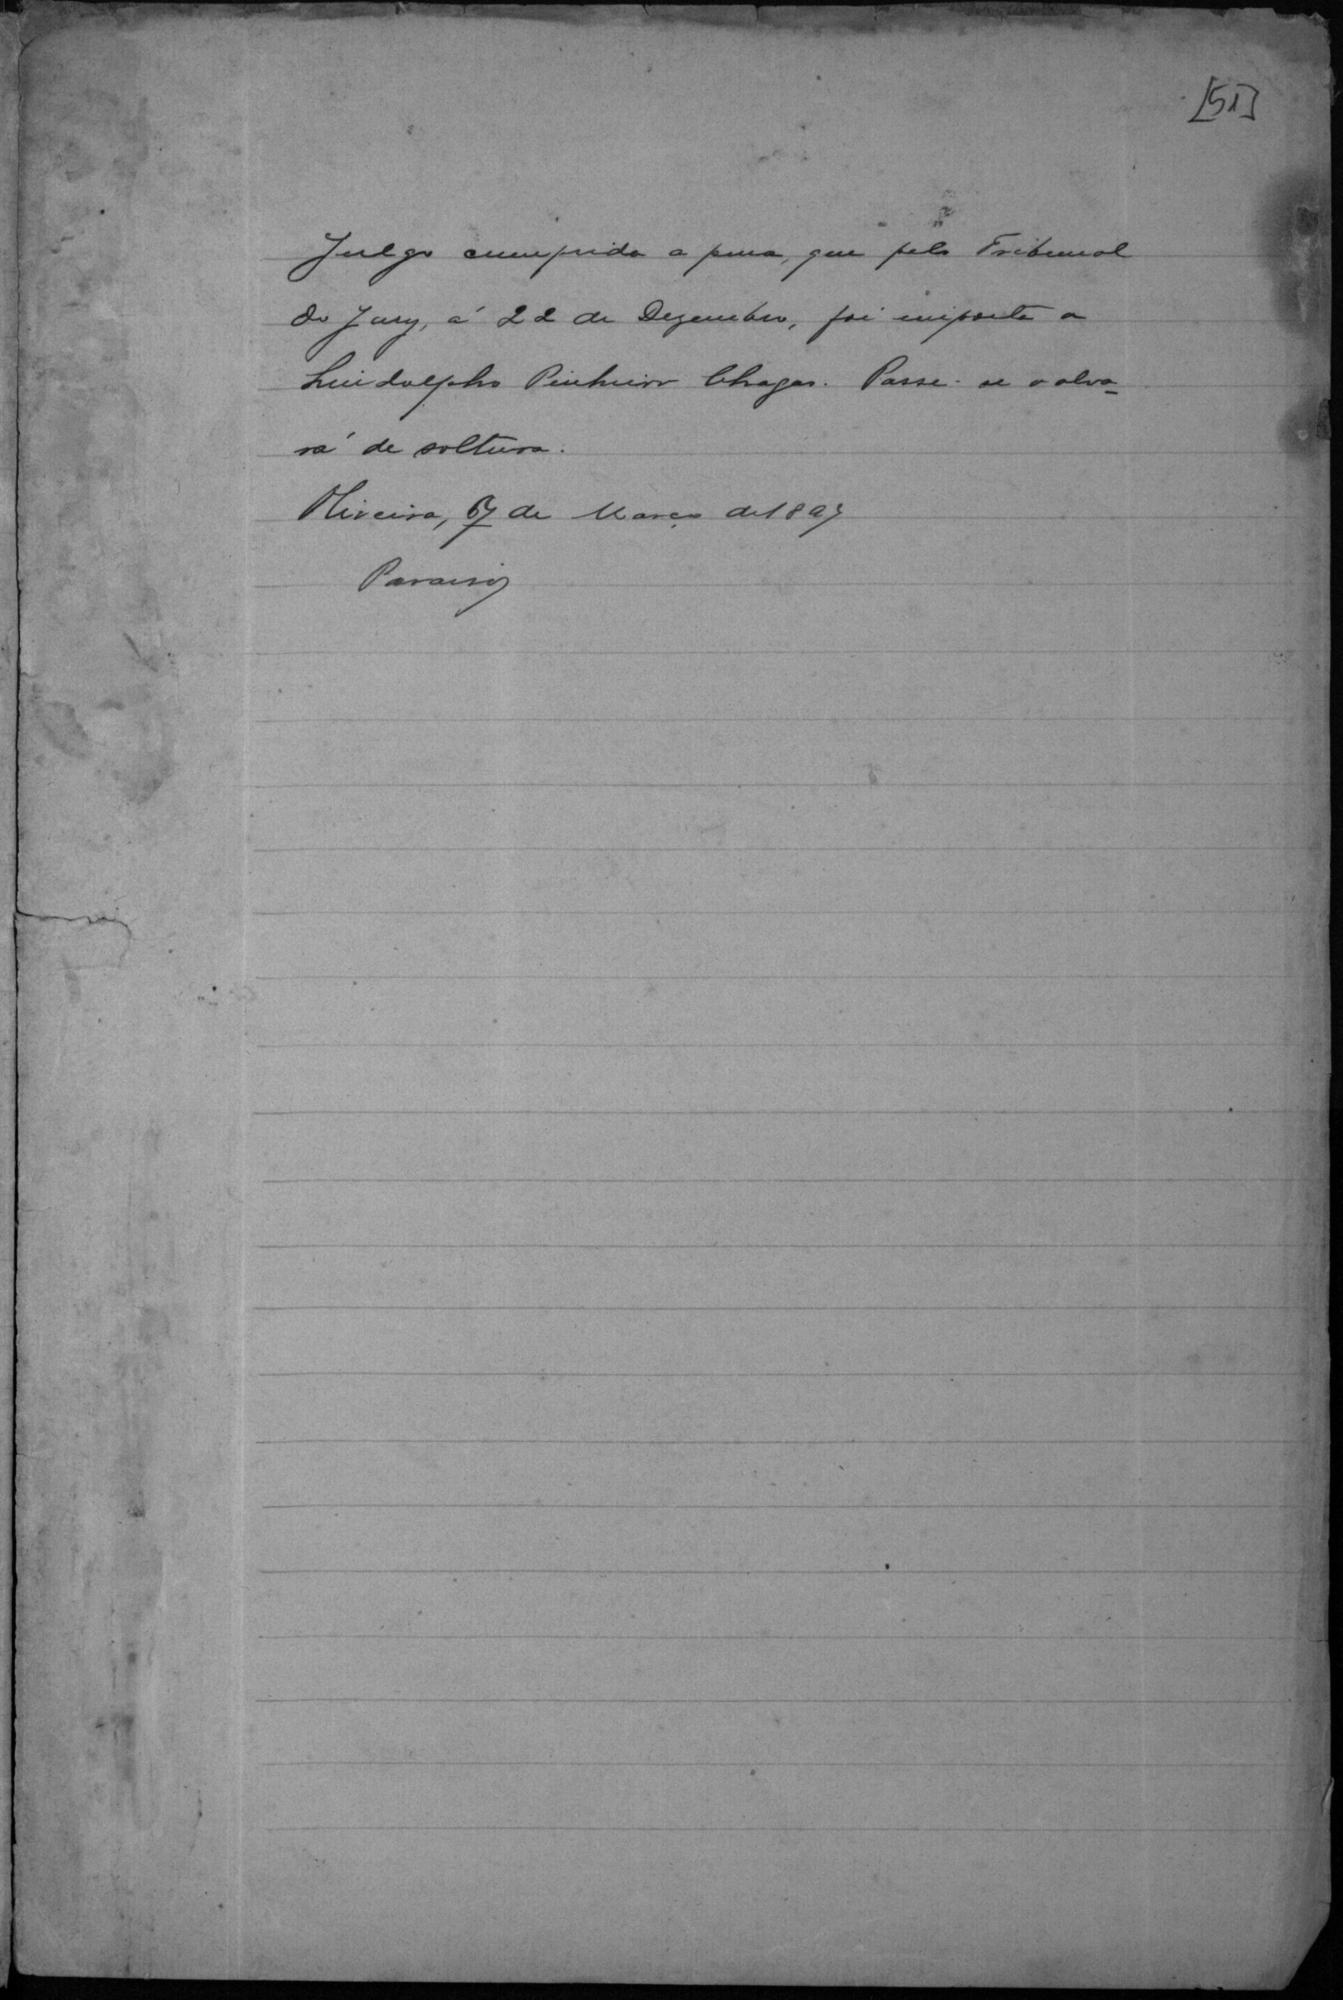 [51]
Julgo cumprida a pena, que pelo Tribunal
do Jury, á 22 de Dezembro, foi imposta a
Lindolpho Pinheiro Chagas. Passe-se o alva-
rá de soltura.
Oliveira, 7 de Março de 1897
Paraiso